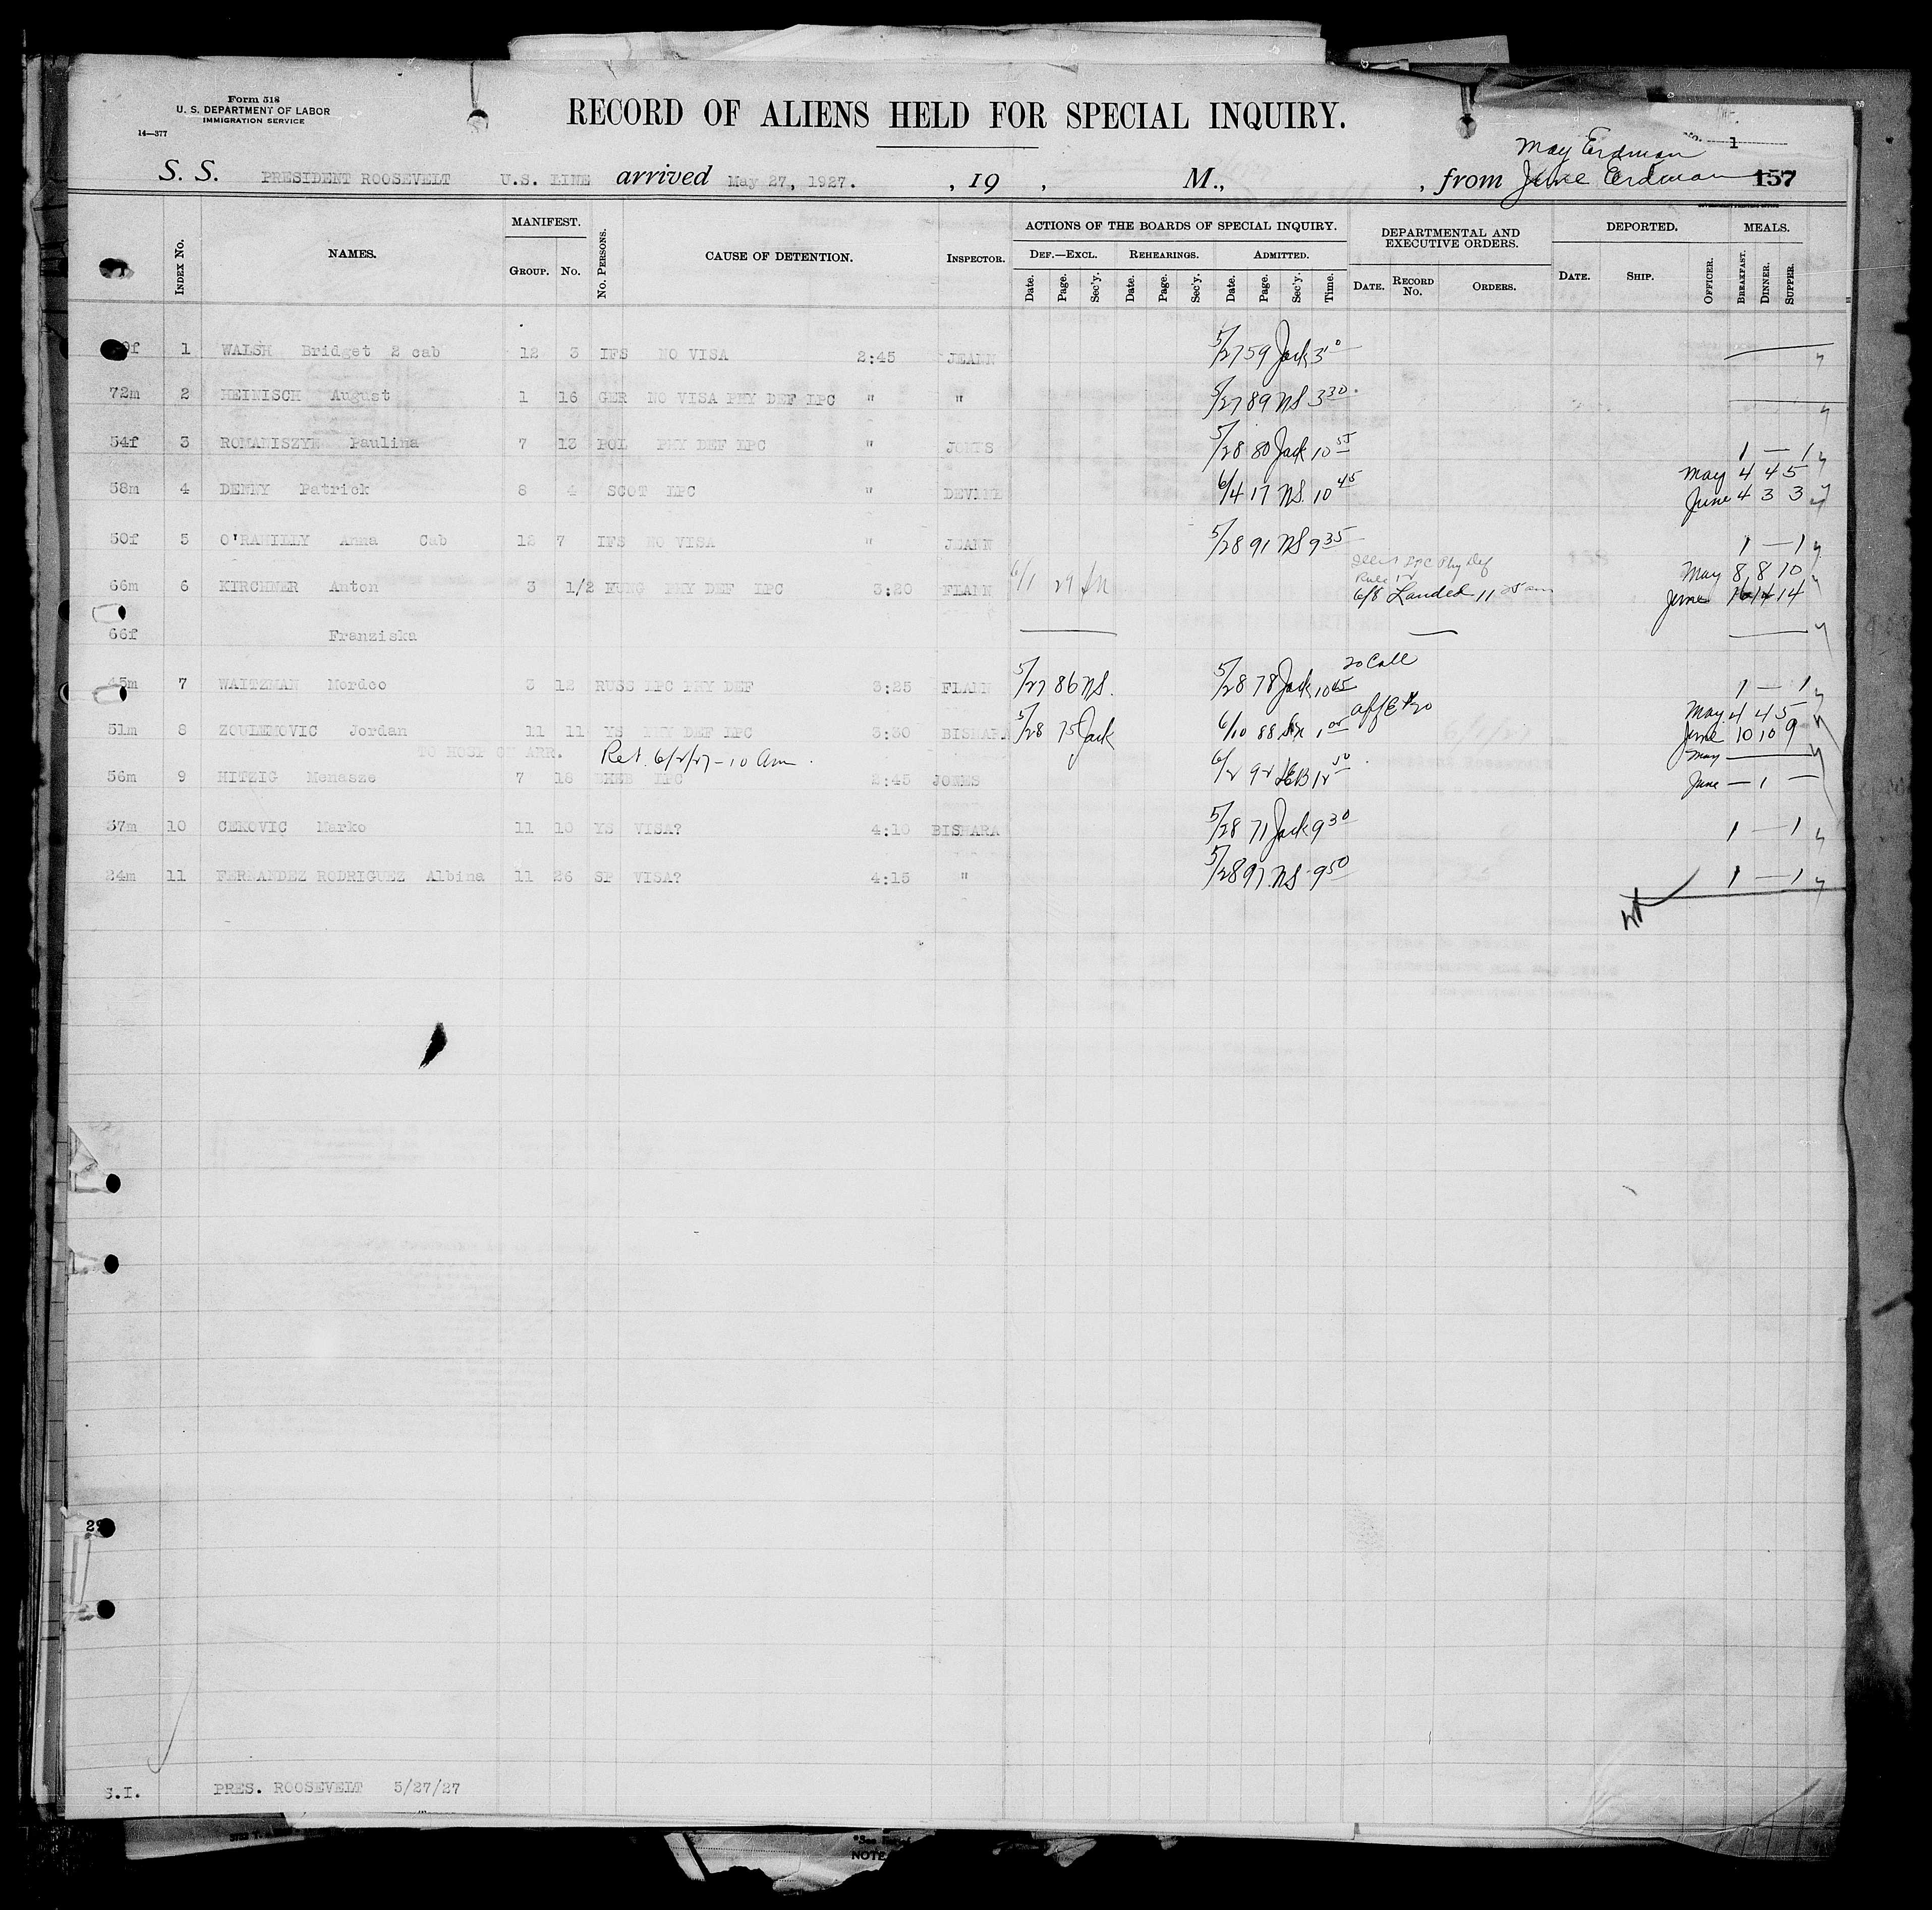 Form 518
U. S. DEPARTMENT OF LABOR
IMMIGRATION SERVICE
14—377
RECORD OF ALIENS HELD FOR SPECIAL INQUIRY.
1
May Erdman
S. S. PRESIDENT ROOSEVELT U.S. LINE arrived May 27, 1927. , 19 , M., , from June Erdman 157
INDEX No. NAMES. MANIFEST. GROUP. No. No. PERSONS. CAUSE OF DETENTION. INSPECTOR. ACTIONS OF THE BOARDS OF SPECIAL INQUIRY. DEF.—EXCL. Date. Page. Sec'y. REHEARINGS. Date. Page. Sec'y. ADMITTED. Date. Page. Sec'y. Time. DEPARTMENTAL AND EXECUTIVE ORDERS. DATE. RECORD No. ORDERS. DEPORTED. DATE. SHIP. OFFICER. MEALS. BREAKFAST. DINNER. SUPPER.
1 WALSH Bridget 2 cab 12 3 IFS NO VISA 2:45 JEANN 5/27 59 Jack
72m 2 HEINISCH August 1 16 GER NO VISA PHY DEF LPC " " 5/27 89 NS 3 30
54f 3 ROMANISZYN Paulina 7 13 POL PHY DEF LPC " 5/28 80 Jack 10 55 1 — 1
May 4 4 5
58m 4 DENNY Patrick 8 4 SCOT LPC " DEVINE 6/4 17 NS. 10 45 June 4 3 3
50f 5 O'RAHILLY Anna Cab 12 7 IFS NO VISA " JEANN 5/28 91 NS 9 35 1 — 1
LPC Phy Def May 8 8 10
66m 6 KIRCHNER Anton 3 1/2 HUNG PHY DEF LPC 3:20 FLAIN 6/1 29 6/8 Landed 11 25 am June 14 14
66f Franziska
20 Call
45m 7 WAITZMAN Mordco 3 12 RUSS LPC PHY DEF 3:25 FLAIN 5/27 86 NS. 5/28 78 Jack 10 45 1 — 1
May 4 4 5
51m 8 ZOULEMOVIC Jordan 11 11 YS PHY DEF LPC 3:30 BISHARA 5/28 75 Jack 6/10 88 June 10 10 9
TO HOSP ON ARR. Ret. 6/2/27 - 10 am. May —
56m 9 HITZIG Menasze 7 18 HEB LPC 2:45 JONES 6/2 92 June — 1 —
37m 10 CEKOVIC Marko 11 10 YS VISA? 4:10 BISHARA 5/28 71 Jack 9 30 1 — 1
24m 11 FERNANDEZ RODRIGUEZ Albina 11 26 SP VISA? 4:15 " 5/28 97 NS 9 50 1 — 1
S.I. PRES. ROOSEVELT 5/27/27
*See
NOTE